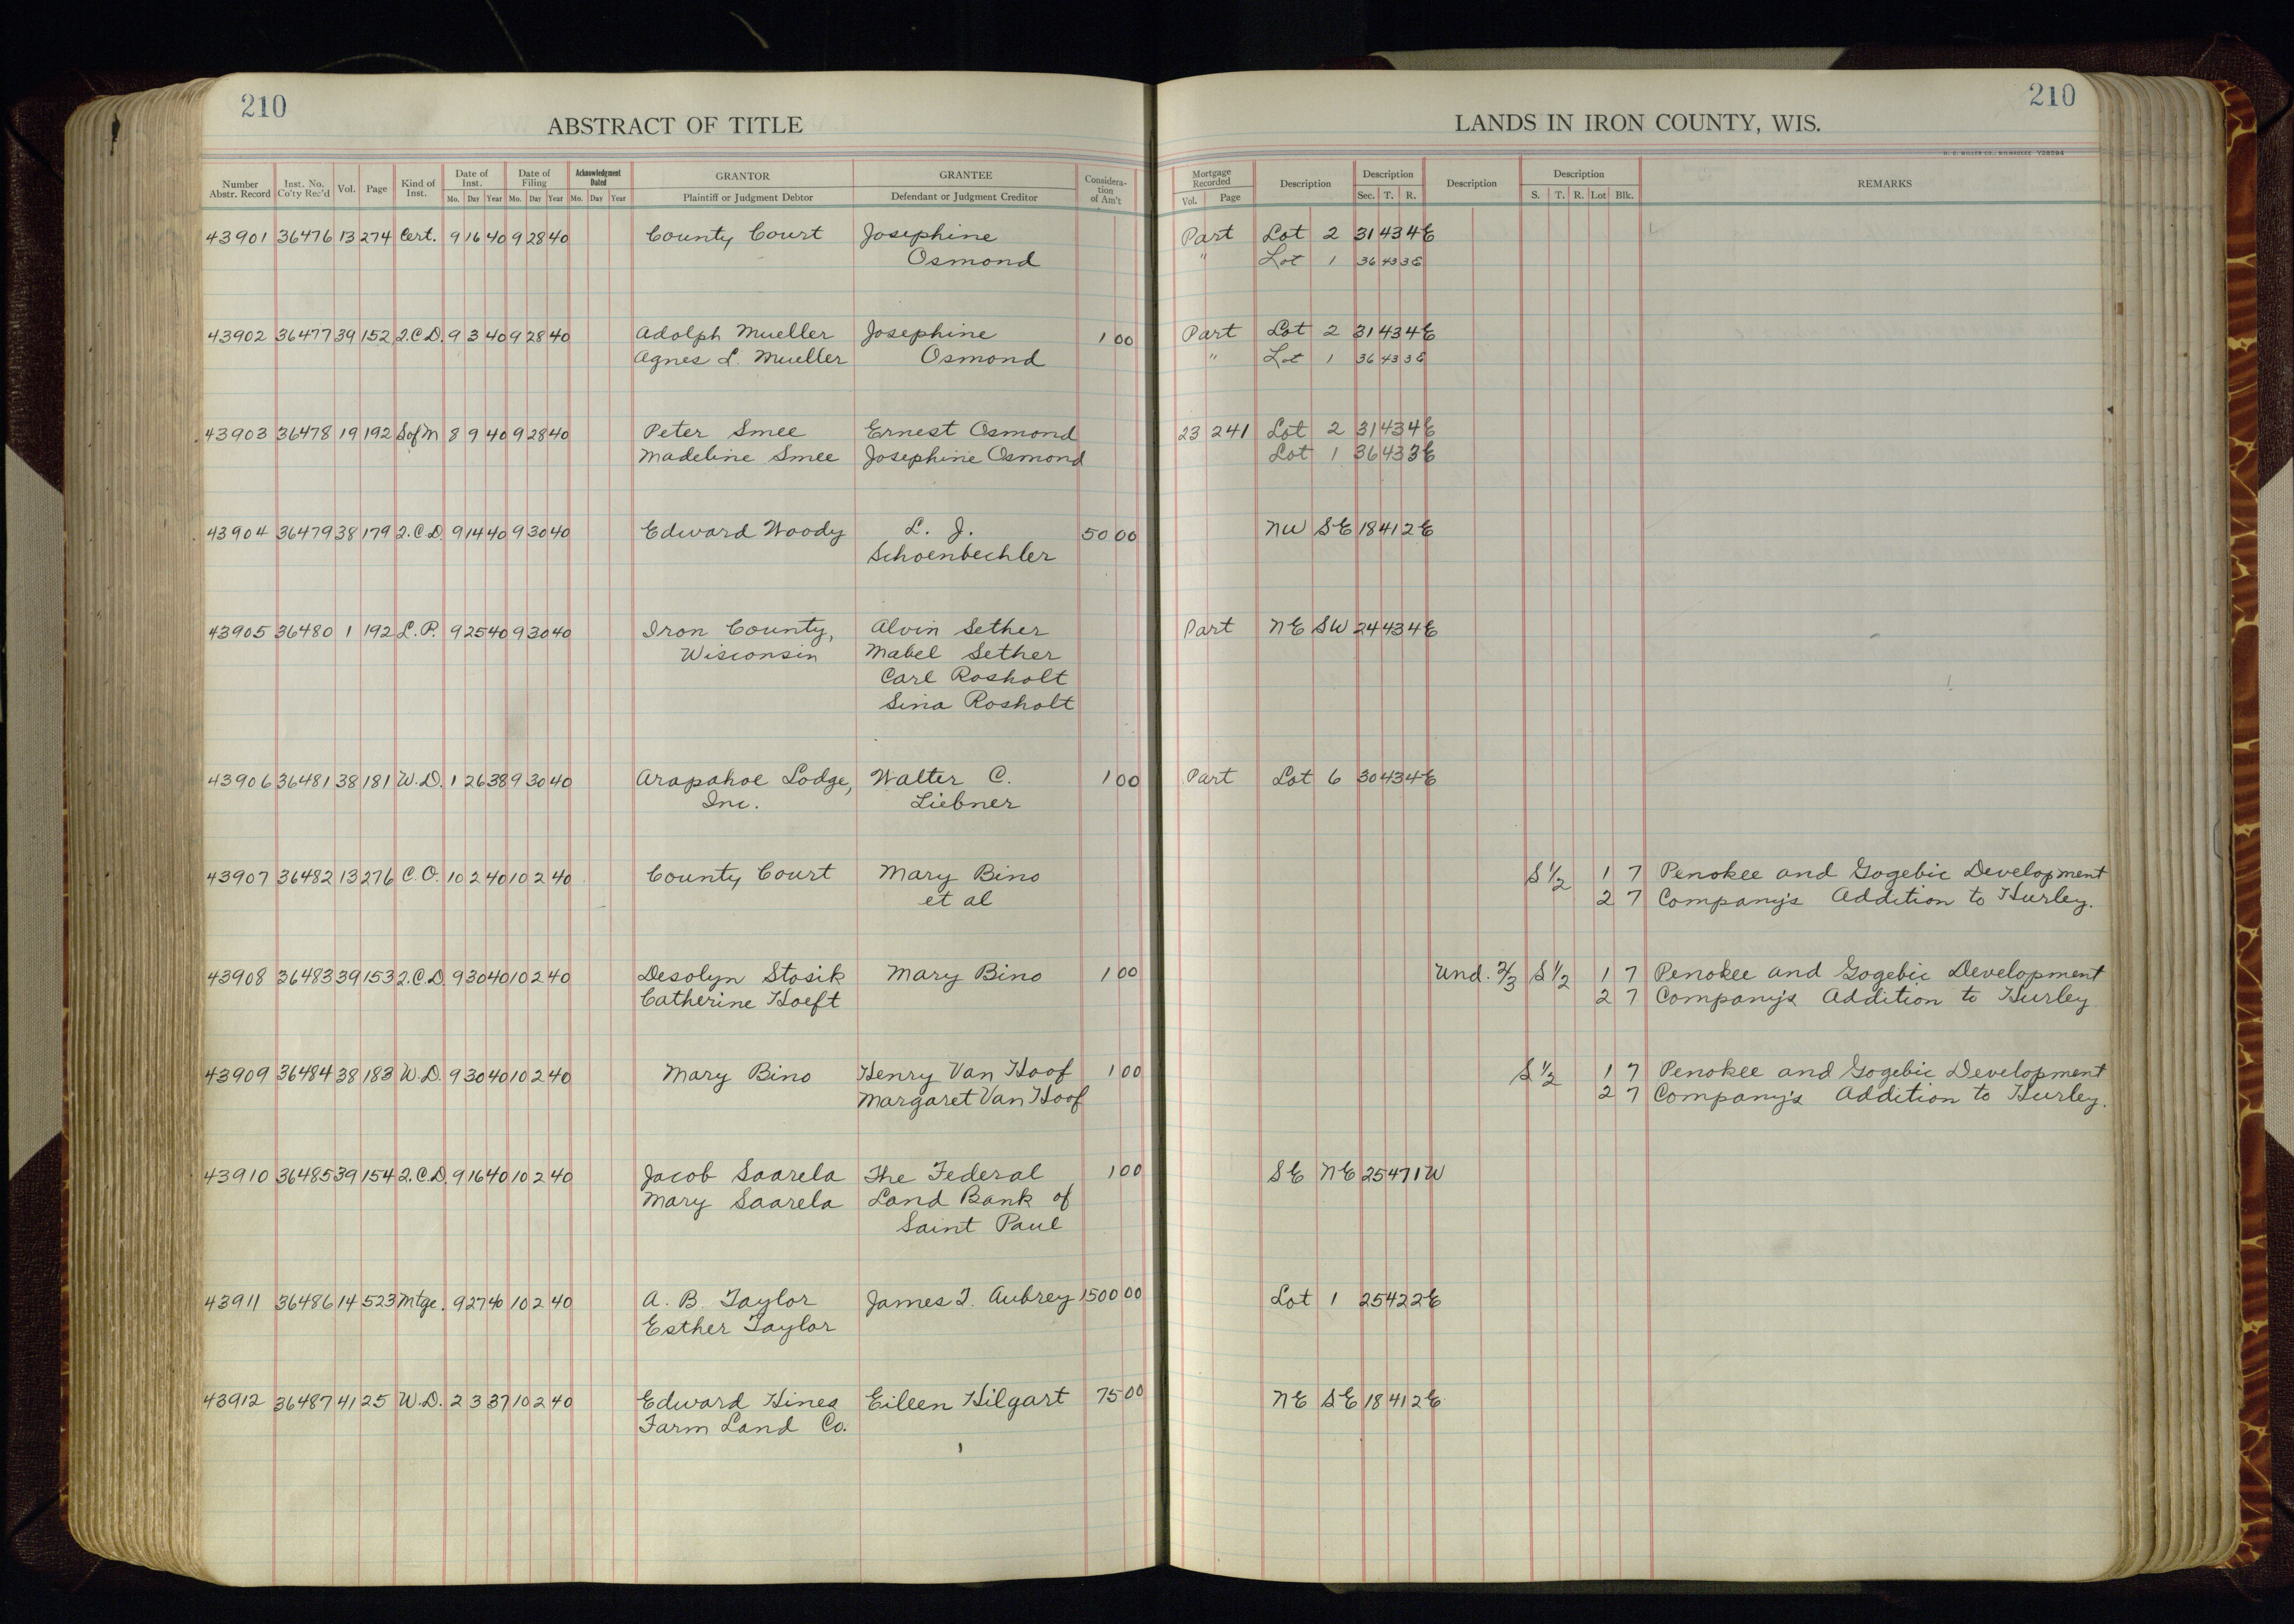 210
ABSTRACT OF TITLE
Number Abstr. Record | Inst. No. Co'ty Rec'd | Vol. | Page | Kind of Inst. | Date of Inst. Mo. Day Year | Date of Filing Mo. Day Year | Acknowledgment Dated Mo. Day Year | GRANTOR Plaintiff or Judgment Debtor | GRANTEE Defendant or Judgment Creditor | Consideration of Am't
43901 36476 13 274 Cert. 9 16 40 9 28 40 County Court Josephine
Osmond
43902 36477 39 152 2.C.D. 9 3 40 9 28 40 Adolph Mueller Josephine 1 00
Agnes L. Mueller Osmond
43903 36478 19 192 S of M 8 9 40 9 28 40 Peter Smee Ernest Osmond
Madeline Smee Josephine Osmond
43904 36479 38 179 2.C.D. 9 14 40 9 30 40 Edward Woody L. J. 50 00
Schoenbechler
43905 36480 1 192 L.P. 9 25 40 9 30 40 Iron County, Alvin Sether
Wisconsin Mabel Sether
Carl Rosholt
Sina Rosholt
43906 36481 38 181 W.D. 1 26 38 9 30 40 Arapahoe Lodge, Walter C. 1 00
Inc. Liebner
43907 36482 13 276 C.O. 10 2 40 10 2 40 County Court Mary Bino
et al
43908 36483 39 153 2.C.D. 9 30 40 10 2 40 Desolyn Stosik Mary Bino 1 00
Catherine Hoeft
43909 36484 38 183 W.D. 9 30 40 10 2 40 Mary Bino Henry Van Hoof 1 00
Margaret Van Hoof
43910 36485 39 154 2.C.D. 9 16 40 10 2 40 Jacob Saarela The Federal 1 00
Mary Saarela Land Bank of
Saint Paul
43911 36486 14 523 Mtge. 9 27 40 10 2 40 A. B. Taylor James T. Aubrey 1500 00
Esther Taylor
43912 36487 41 25 W.D. 2 3 37 10 2 40 Edward Hines Eileen Hilgart 75 00
Farm Land Co.
210
LANDS IN IRON COUNTY, WIS.
H. C. MILLER CO., MILWAUKEE Y28594
Mortgage Recorded Vol. Page | Description | Description Sec. T. R. | Description | Description S. T. R. Lot Blk. | REMARKS
Part Lot 2 31 43 4E
" Lot 1 36 43 3E
Part Lot 2 31 43 4E
" Lot 1 36 43 3E
23 241 Lot 2 31 43 4E
Lot 1 36 43 3E
NW SE 18 41 2E
Part NE SW 24 43 4E
Part Lot 6 30 43 4E
S ½ 1 7 Penokee and Gogebic Development
2 7 Company's Addition to Hurley.
Und. 2/3 S ½ 1 7 Penokee and Gogebic Development
2 7 Company's Addition to Hurley
S ½ 1 7 Penokee and Gogebic Development
2 7 Company's Addition to Hurley.
SE NE 25 47 1W
Lot 1 25 42 2E
NE SE 18 41 2E